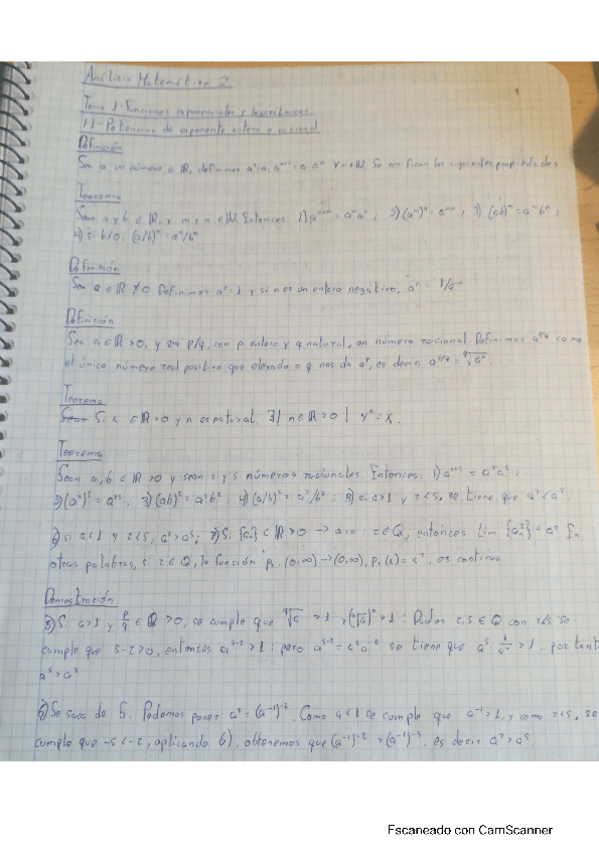 Análisis Matemático 2
Tema 1 - Funciones exponenciales y logarítmicas
1.1 - Potencias de exponente entero o racional
Definición
Sea a un número ∈ ℝ, definimos a¹ = a, aⁿ⁺¹ = a·aⁿ ∀n∈ℕ. Se verifican las siguientes propiedades
Teorema
Sean a y b ∈ ℝ, y m y n ∈ ℕ. Entonces 1) aᵐ⁺ⁿ = aᵐaⁿ ; 2) (aᵐ)ⁿ = aᵐⁿ ; 3) (ab)ⁿ = aⁿbⁿ ;
4) si b≠0, (a/b)ⁿ = aⁿ/bⁿ
Definición
Sea a ∈ ℝ ≠ 0 Definimos a⁰ = 1 y si n es un entero negativo, aⁿ = 1/a⁻ⁿ
Definición
Sea a ∈ ℝ > 0, y sea p/q, con p entero y q natural, un número racional. Definimos a^(p/q) como
el único número real positivo que elevado a q nos da aᵖ, es decir a^(p/q) = ᵠ√aᵖ.
Teorema
Si x ∈ ℝ > 0 y n es natural, ∃| ∈ ℝ > 0 | yⁿ = x.
Teorema
Sean a, b ∈ ℝ > 0 y sean r y s números racionales. Entonces: 1) aʳ⁺ˢ = aʳaˢ ;
2) (aʳ)ˢ = aʳˢ ; 3) (ab)ʳ = aʳbʳ ; 4) (a/b)ʳ = aʳ/bʳ ; 5) si a>1 y r<s, se tiene que aʳ < aˢ ;
6) si a<1 y r<s, aʳ > aˢ ; 7) Si {aₙ} ∈ ℝ > 0 → a>0 : r ∈ ℚ, entonces lim {aₙʳ} = aʳ. En
otras palabras, si r ∈ ℚ, la función pᵣ : (0,∞) → (0,∞), pᵣ(x) = xʳ, es continua.
Demostración
5) Si a>1 y p/q ∈ ℚ > 0, se cumple que ᵠ√a > 1, (ᵠ√a)ᵖ > 1 : Dados r, s ∈ ℚ con r<s se
cumple que s-r>0, entonces aˢ⁻ʳ > 1 ; pero aˢ⁻ʳ = aˢa⁻ʳ se tiene que aˢ · 1/aʳ > 1, por tanto
aˢ > aʳ
6) Se saca de 5. Podemos poner aʳ = (a⁻¹)⁻ʳ. Como a<1 se cumple que a⁻¹>1, y como r<s, se
cumple que -s<-r, aplicando 6), obtenemos que (a⁻¹)⁻ʳ > (a⁻¹)⁻ˢ, es decir aʳ > aˢ.
Escaneado con CamScanner